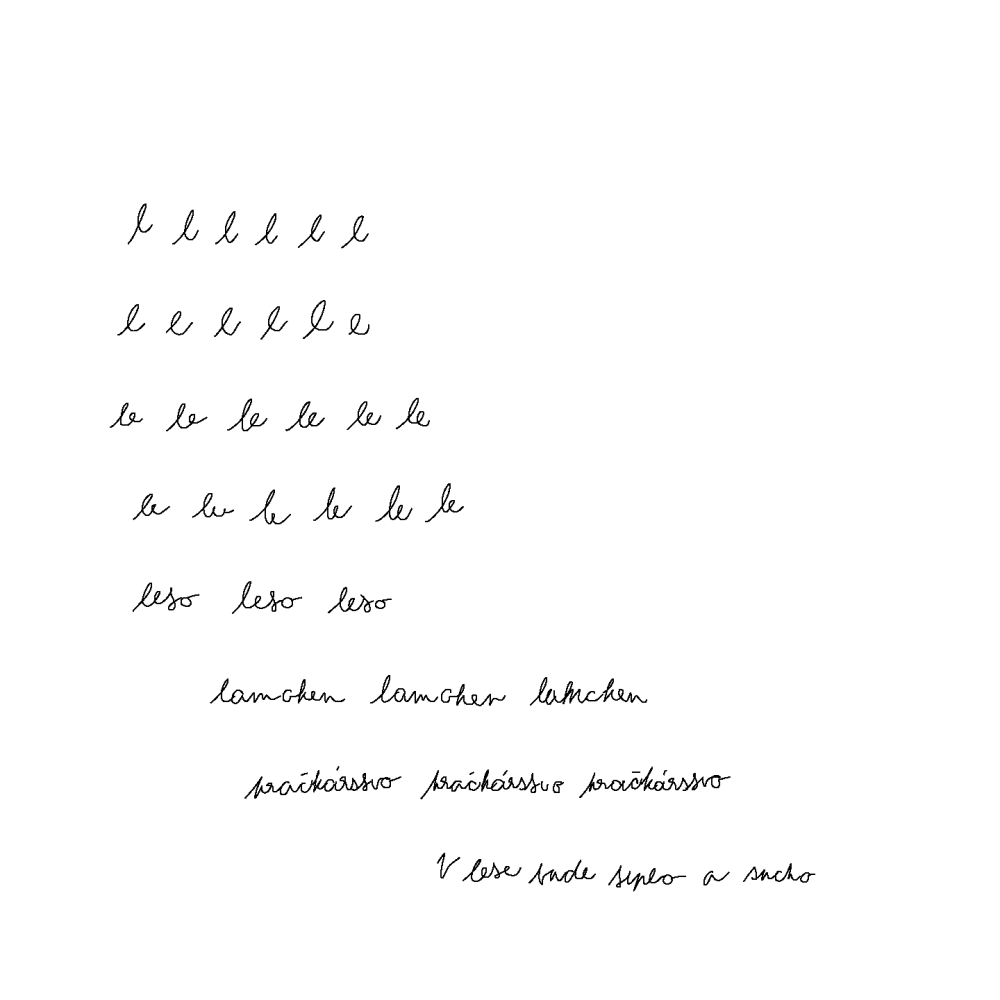 l l l l l l
l e l l l e
le le le le le le
le le le le le le
leto leto leto
lamohen lamohen lamchen
hračkárstvo hračkárstvo hračkárstvo
V lese bude teplo a sucho